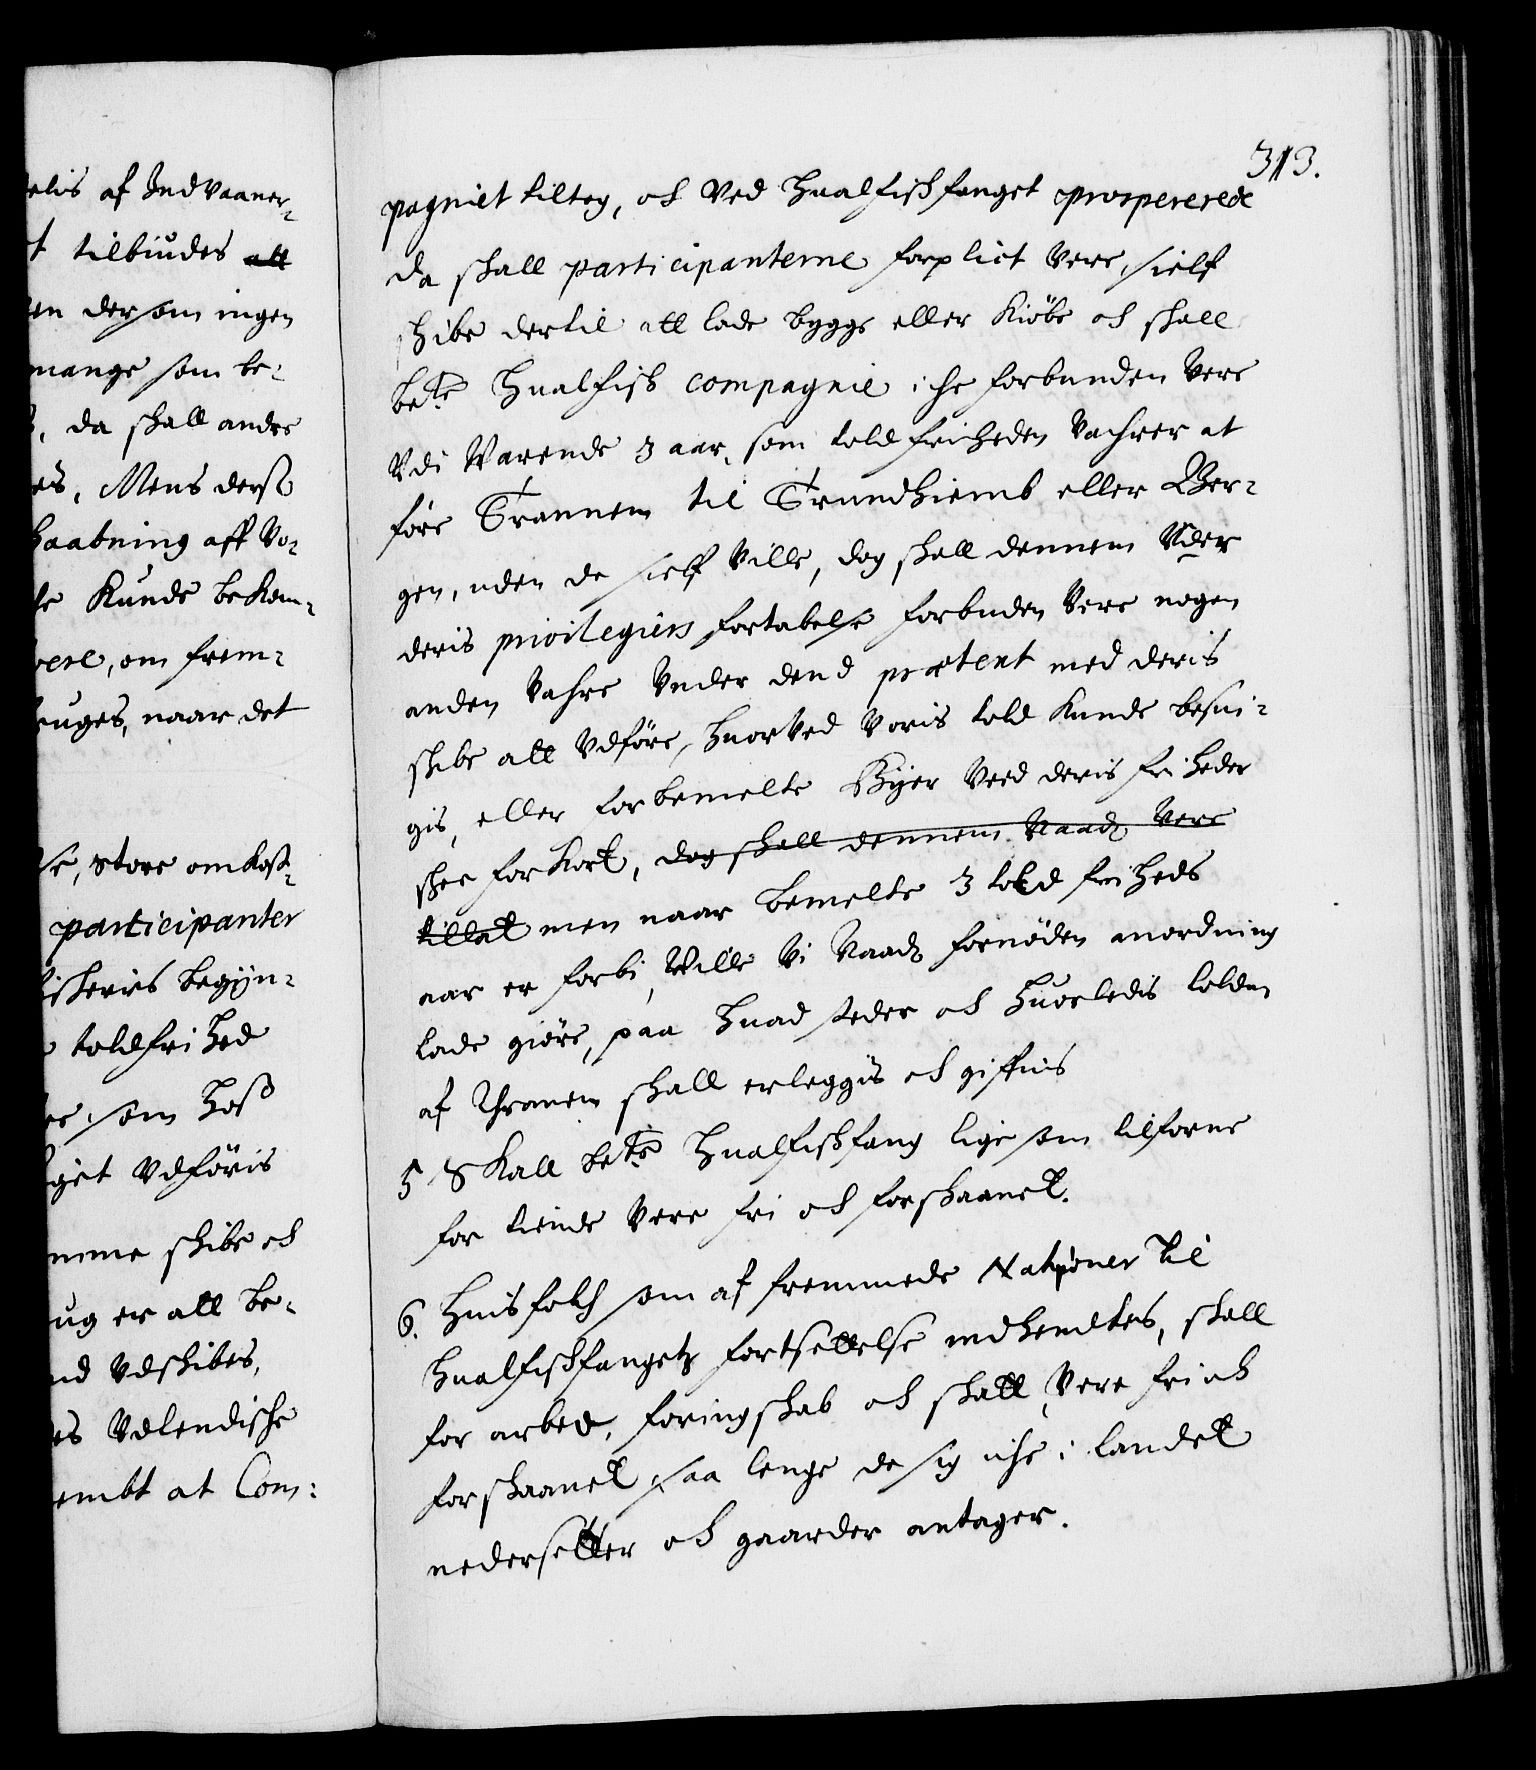 elis af Indvaaner-
t tilbiudes att
en dersom ingen
mange som be-
, da skall andre
es, Mens dersom
haabning aff Vo-
e Kunde bekom-
vere, om frem-
ruges, naar det
se, store omkost-
participanter
iskeriis begyn-
toldfrihed
er som hoss
get Udföris
mme skibe och
ug er att be-
nd Udskibes,
es Udlendische
embt at Com:
313.
pagniet tiltog, och Ved Hualfiskfanget prospererede
da skall participanterne forplict Vere, sielf
skibe dertil att lade bygge eller Kiöbe och skall
bete Hualfisk compagnie iche forbunden Vere
Udi Warende 3 aar, som toldfriheden Vahrer at
före Trannen til Trundhiemb eller Ber-
gen, uden de sielf Ville, dog skall dennem Under
deris privilegiers fortabelse forbuden Vere nogen
anden Vahre Under dend prætext med deris
skibe att Udföre, huorved Voris told Kunde besui-
gis, eller forbemelte Byer Ved deris friheder
skee forkort, dog skall dennem Naadt Vere
tillat men naar bemelte 3 told friheds
aar er forbi, Wille Vi Naadt fornöden anordning
lade giöre, paa huad steder och huorledis tolden
af Thranen skall erleggis och giffuis
5 Skall bete Hualfiskfang lige som tilforne
for tiende Vere fri och forskaanet.
6. Huis folch som af fremmede Nationer til
Hualfiskfangetz fortsettelse indhendtes, skall
for arbed, foringskab och skatt, Vere fri och
forskaanet, saa lenge de sig iche i landet
nedersetter och gaarder antager.